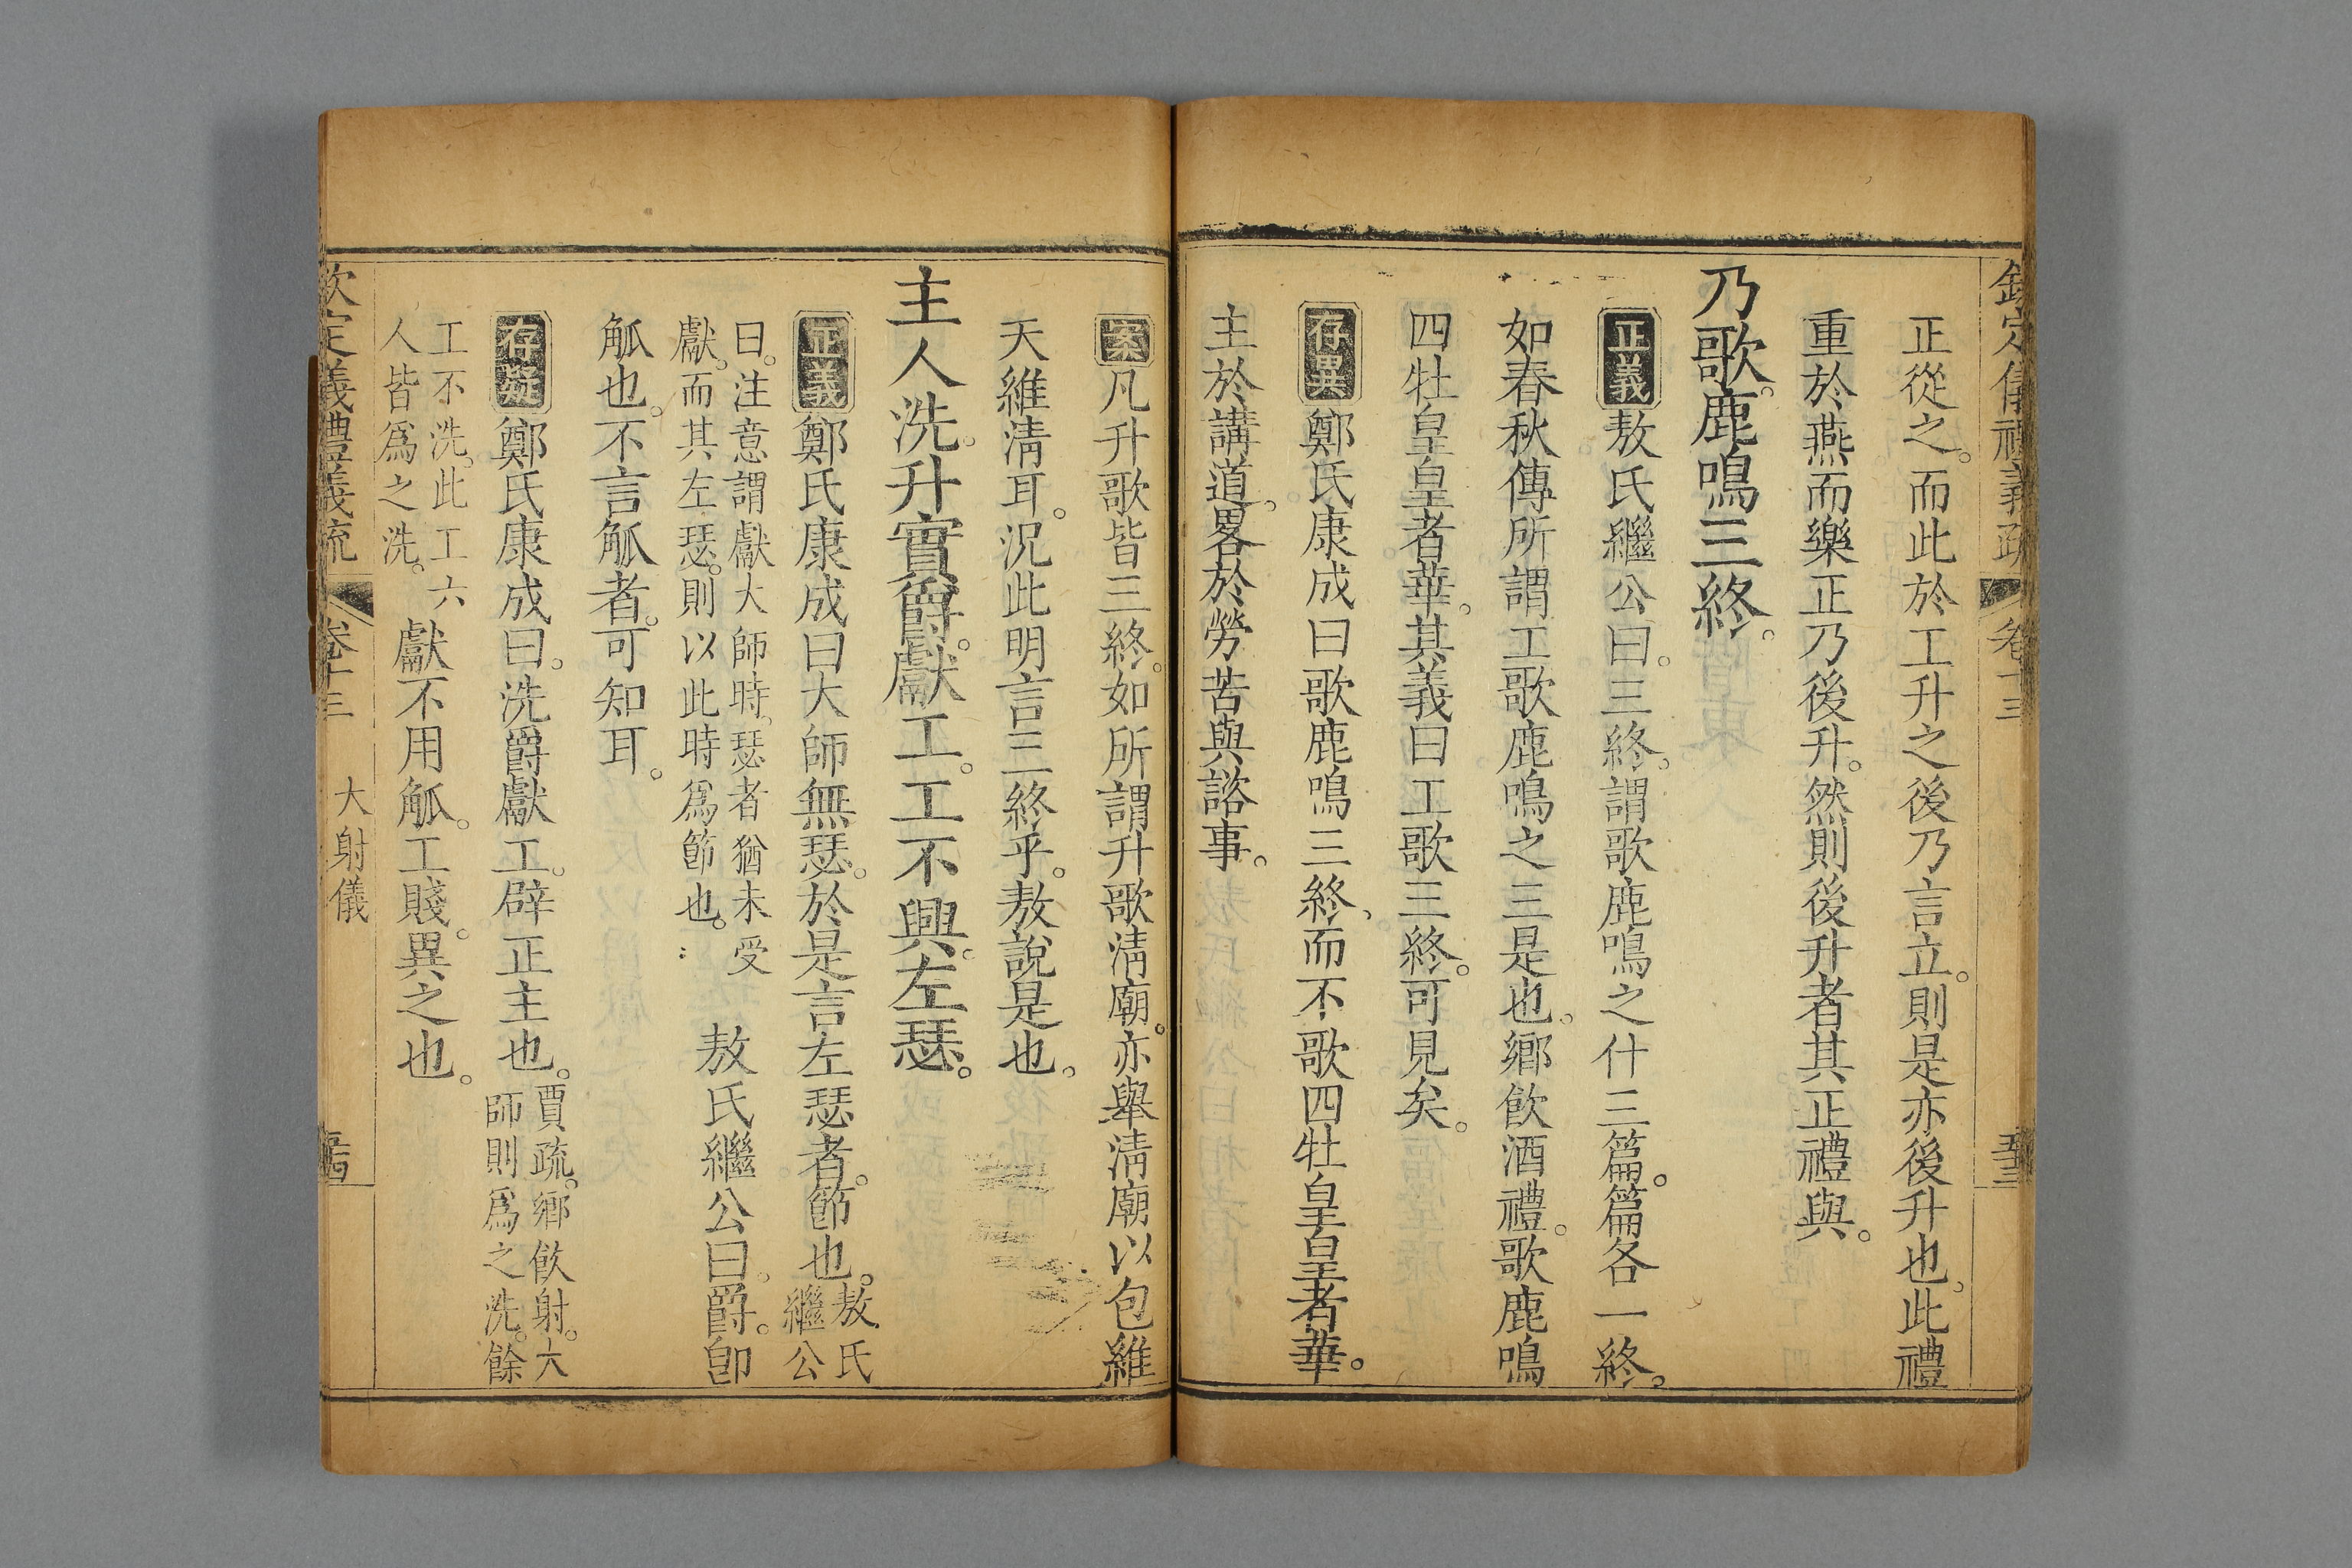 欽定儀禮義疏 卷十三 五十三
正從之。而此於工升之後乃言立。則是亦後升也。此禮
重於燕而樂正乃後升。然則後升者其正禮與。
乃歌。鹿鳴三終。
正義敖氏繼公曰。三終。謂歌鹿鳴之什三篇。篇各一終。
如春秋傳所謂工歌鹿鳴之三是也。鄉飲酒禮。歌鹿鳴
四牡皇皇者華。其義曰工歌三終。可見矣。
存異鄭氏康成曰歌鹿鳴三終、而不歌四牡皇皇者華。
主於講道。畧於勞苦與諮事。
案凡升歌皆三終。如所謂升歌淸廟。亦舉淸廟以包維
天維淸耳。況此明言三終乎。敖說是也。
主人洗。升實爵。獻工。工不興。左瑟。
正義鄭氏康成曰大師無瑟。於是言左瑟者。節也。敖氏繼公
曰。注意謂獻大師時。瑟者猶未受
獻。而其左瑟。則以此時爲節也。敖氏繼公曰。爵。卽
觚也。不言觚者。可知耳。
存疑鄭氏康成曰。洗爵獻工。辟正主也。賈疏。鄉飮射。大師則爲之洗。餘
工不洗。此工六
人皆爲之洗。獻不用觚。工賤。異之也。
欽定儀禮義疏 卷十三 大射儀 五十四